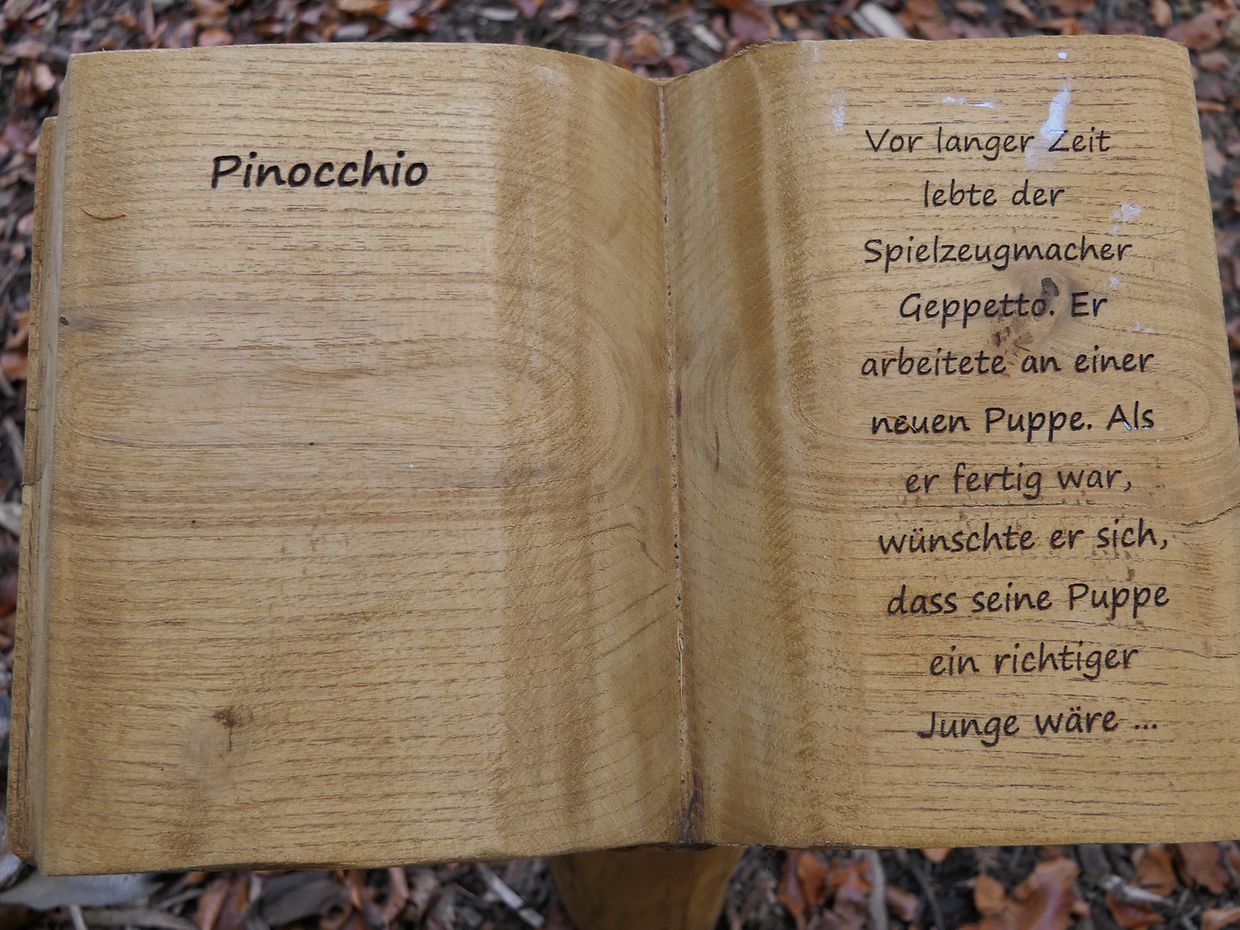 Pinocchio
Vor langer Zeit
lebte der
Spielzeugmacher
Geppetto. Er
arbeitete an einer
neuen Puppe. Als
er fertig war,
wünschte er sich,
dass seine Puppe
ein richtiger
Junge wäre ...